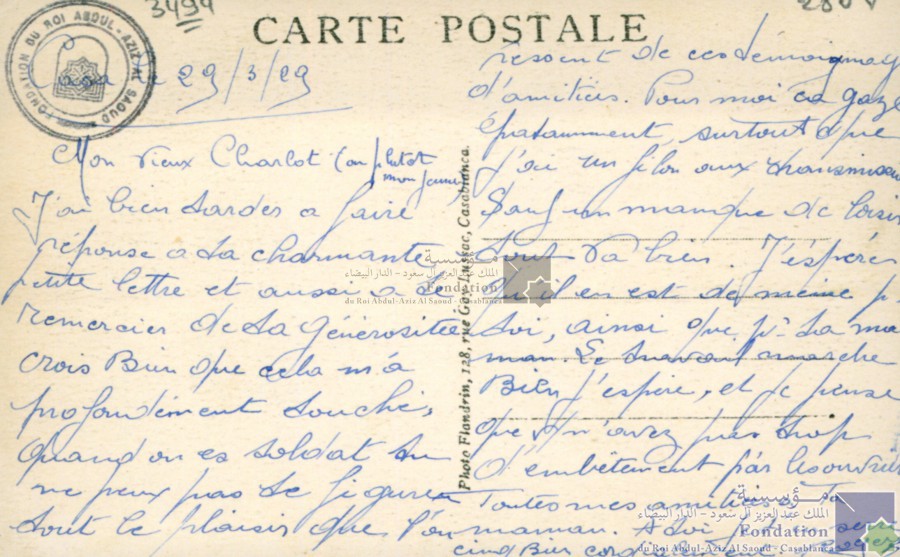 3494
CARTE POSTALE
FONDATION DU ROI ABDUL-AZIZ AL SAOUD
29/3/29
Mon vieux Charlot (ou plutot
mon jeune)
J'ai bien tardes a faire
réponse a ta charmante
petite lettre et aussi a te
remercier de ta générositée
crois Bien que cela m'a
profondément touché,
Quand on es soldat tu
ne peux pas te figurer
tout le plaisir que l'on
ressent de ces temoignages
d'amitiés. Pour moi ca gaze
épatamment, surtout que
j'ai un filon aux transmissions
Sauf un manque de loisir
tout va bien. J'espére
qu'il en est de même pr
toi, ainsi que pr ta ma
man. Le travail marche
Bien j'espére, et je pense
que tu n'avez pas trop
d'embêtement par les ouvriers
Toutes mes amitiés a Ta
maman. A toi
cinq Bien
Photo Flandrin, 128, rue Gay-Lussac, Casablanca.
مؤسسة
الملك عبد العزيز آل سعود - الدار البيضاء
Fondation
du Roi Abdul-Aziz Al Saoud - Casablanca
مؤسسة
الملك عبد العزيز آل سعود - الدار البيضاء
Fondation
du Roi Abdul-Aziz Al Saoud - Casablanca